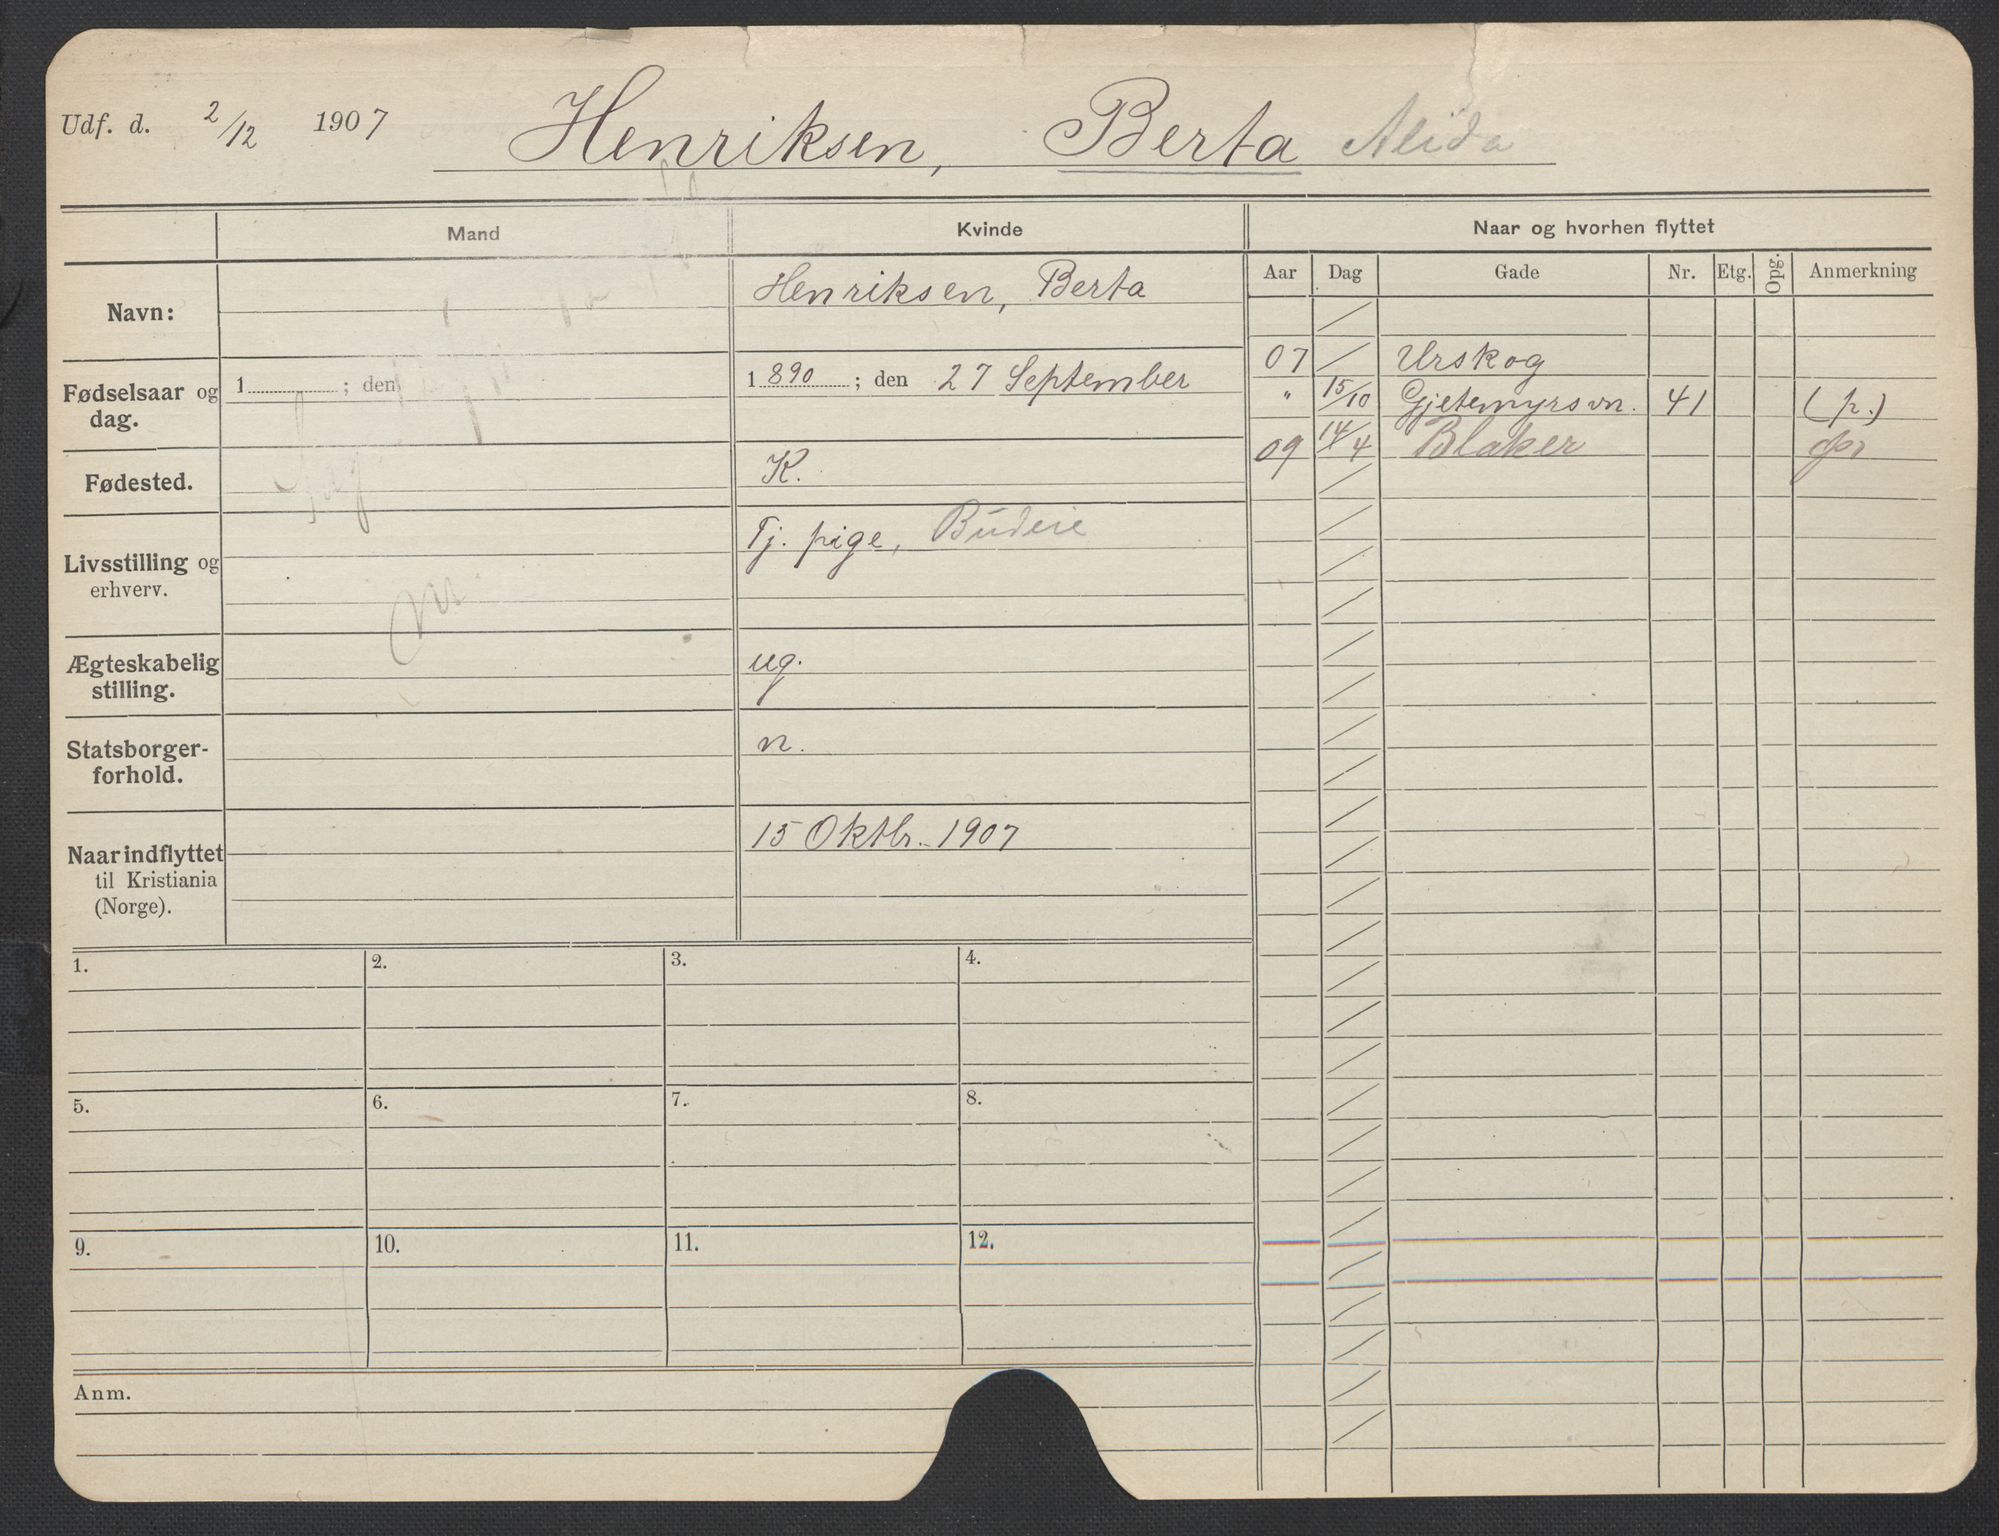 Udf. d. 2/12 1907 Henriksen, Berta Alida
Mand Kvinde Naar og hvorhen flyttet
Aar Dag Gade Nr. Etg. Opg. Anmerkning
Navn: Henriksen, Berta
Fødselsaar og dag. 1 ; den 1890 ; den 27 September
Fødested. K.
Livsstilling og erhverv. Tj. pige, Budeie
Ægteskabelig stilling. ug.
Statsborger-
forhold. n.
Naar indflyttet
til Kristiania
(Norge). 15 Oktbr. 1907
07 Urskog
" 15/10 Gjetemyrsvn. 41 (p.)
09 14/4 Blaker
1. 2. 3. 4.
5. 6. 7. 8.
9. 10. 11. 12.
Anm.